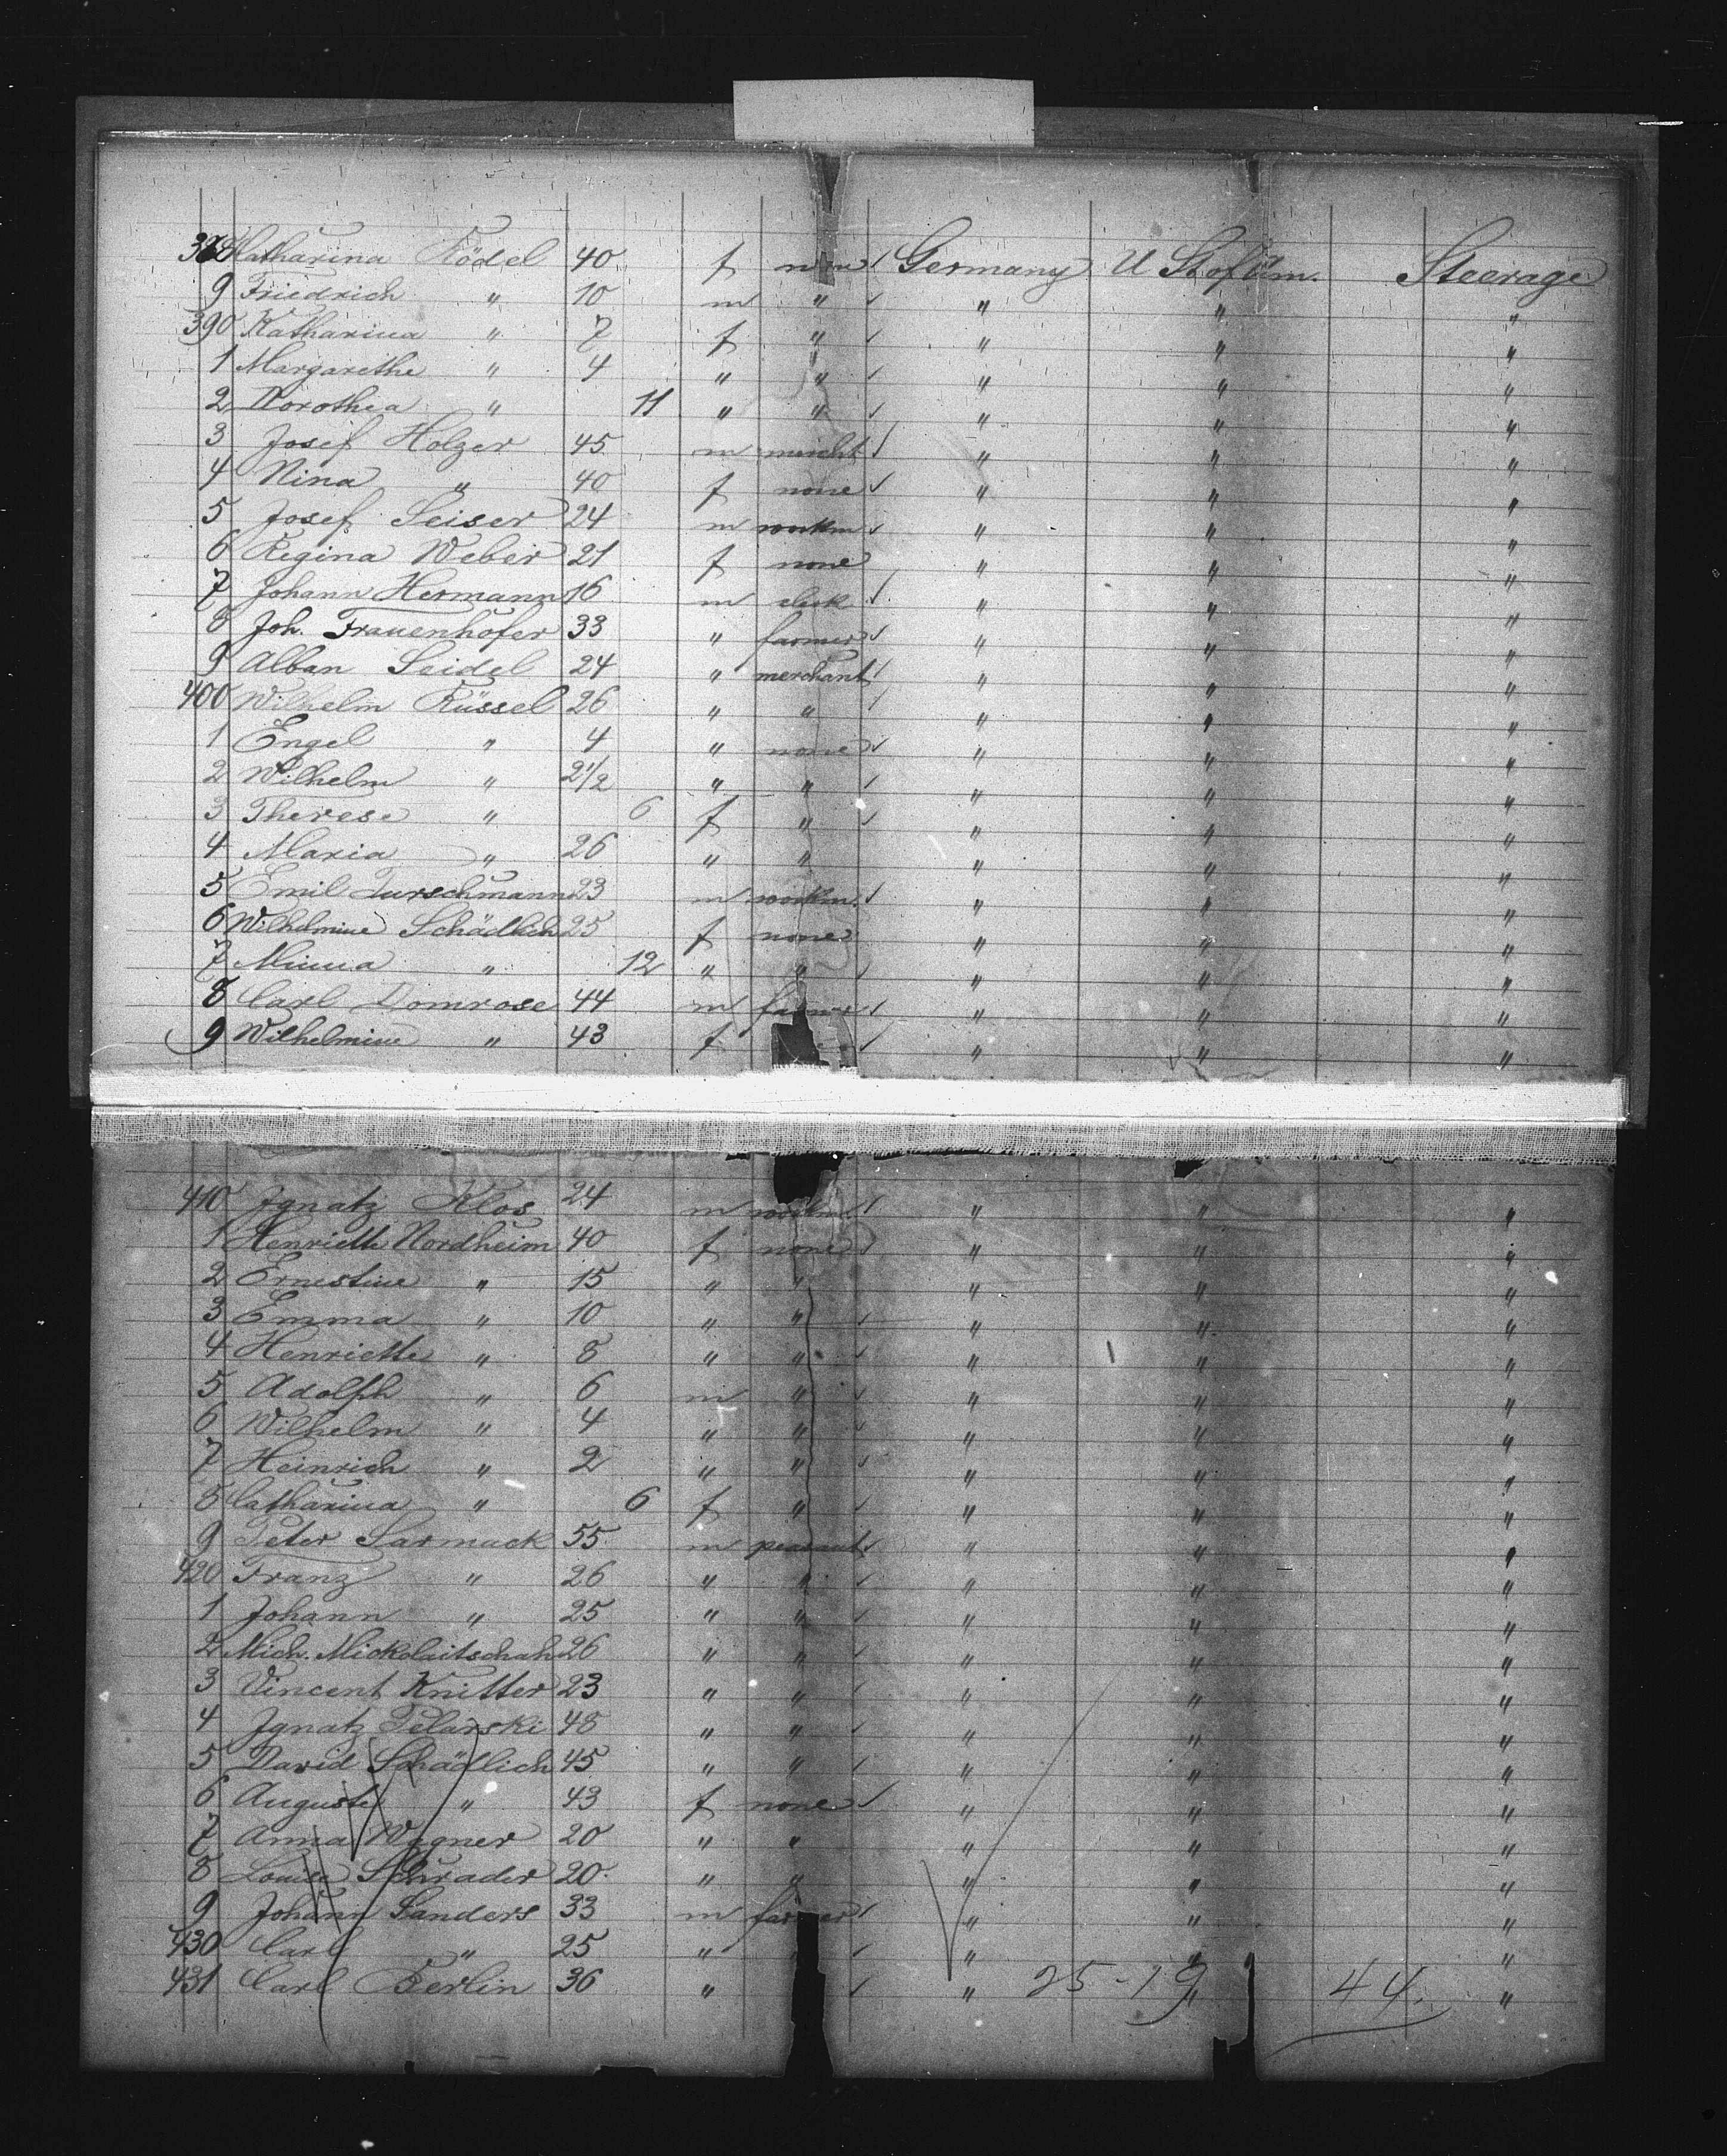 388 Katharina Födel 40 f none Germany U St of Am. Steerage
9 Friedrich " 10 m " " " "
390 Katharina " 7 f " " " "
1 Margarethe " 4 " " " " "
2 Dorothea " 11 " " " " "
3 Josef Holzer 45 m mercht " " "
4 Nina " 40 f none " " "
5 Josef Seiser 24 m workm " " "
6 Regina Weber 21 f none " " "
7 Johann Hermann 16 m clerk " " "
8 Joh. Frauenhofer 33 " farmer " " "
9 Alban Seidel 24 " merchant " " "
400 Wilhelm Rüssel 26 " " " " "
1 Engel " 4 " none " " "
2 Wilhelm " 2 1/2 " " " " "
3 Therese " 6 f " " " "
4 Maria " 26 " " " " "
5 Emil Turschmann 23 m workm. " " "
6 Wilhelmine Schädlich 25 f none " " "
7 Minna " 12 " " " " "
8 Carl Domrose 44 m farmer " " "
9 Wilhelmine " 43 f " " "
410 Ignatz Klos 24 m workm. " " "
1 Henriette Nordheim 40 f none " " "
2 Ernestine " 15 " " " " "
3 Emma " 10 " " " " "
4 Henriette " 8 " " " " "
5 Adolph " 6 m " " " "
6 Wilhelm " 4 " " " " "
7 Heinrich " 2 " " " " "
8 Catharina " 6 f " " " "
9 Peter Sarmack 55 m peasant " " "
420 Franz " 26 " " " " "
1 Johann " 25 " " " " "
2 Mich. Mickolaitschah 26 " " " " "
3 Vincent Knitter 23 " " " " "
4 Ignatz Pelarski 48 " " " " "
5 David Schädlich 45 " " " " "
6 Auguste " 43 f none " " "
7 Anna Wagner 20 " " " " "
8 Louise Schrader 20 " " " " "
9 Johann Sanders 33 m farmer " " "
430 Carl " 25 " " " "
431 Carl Berlin 36 " " " "
25-19 44.